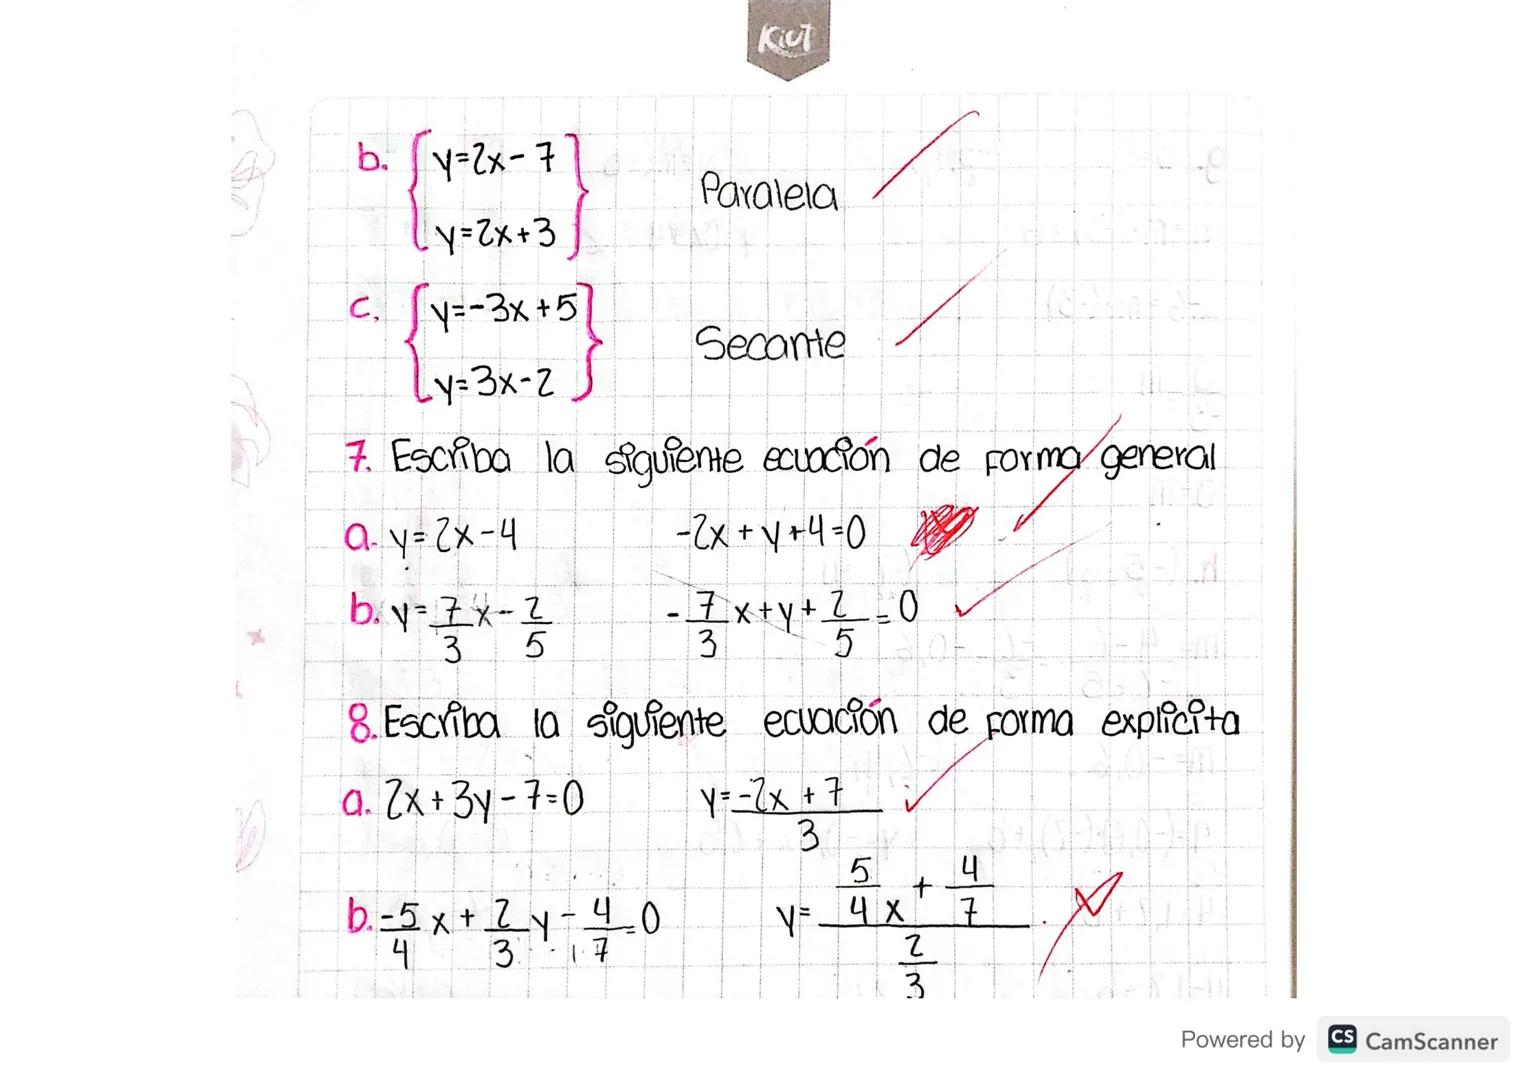 Kiut
b. { y=2x-7
y=2x+3 } Paralela
c. { y=-3x+5
y=3x-2 } Secante
7. Escriba la siguiente ecuación de forma general
a. y=2x-4 -2x+y+4=0
b. y=7/3 x-2/5 -7/3 x+y+2/5=0
8. Escriba la siguiente ecuación de forma explicita
a. 2x+3y-7=0 y=-2x+7/3
b. -5/4 x+2/3 y-4/7=0 y=5/4 x+4/7 / 2/3
Powered by CS CamScanner